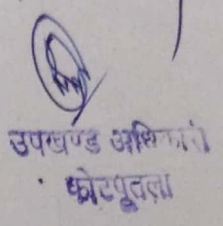 उपखण्ड अधिकारी
कोटपूतला